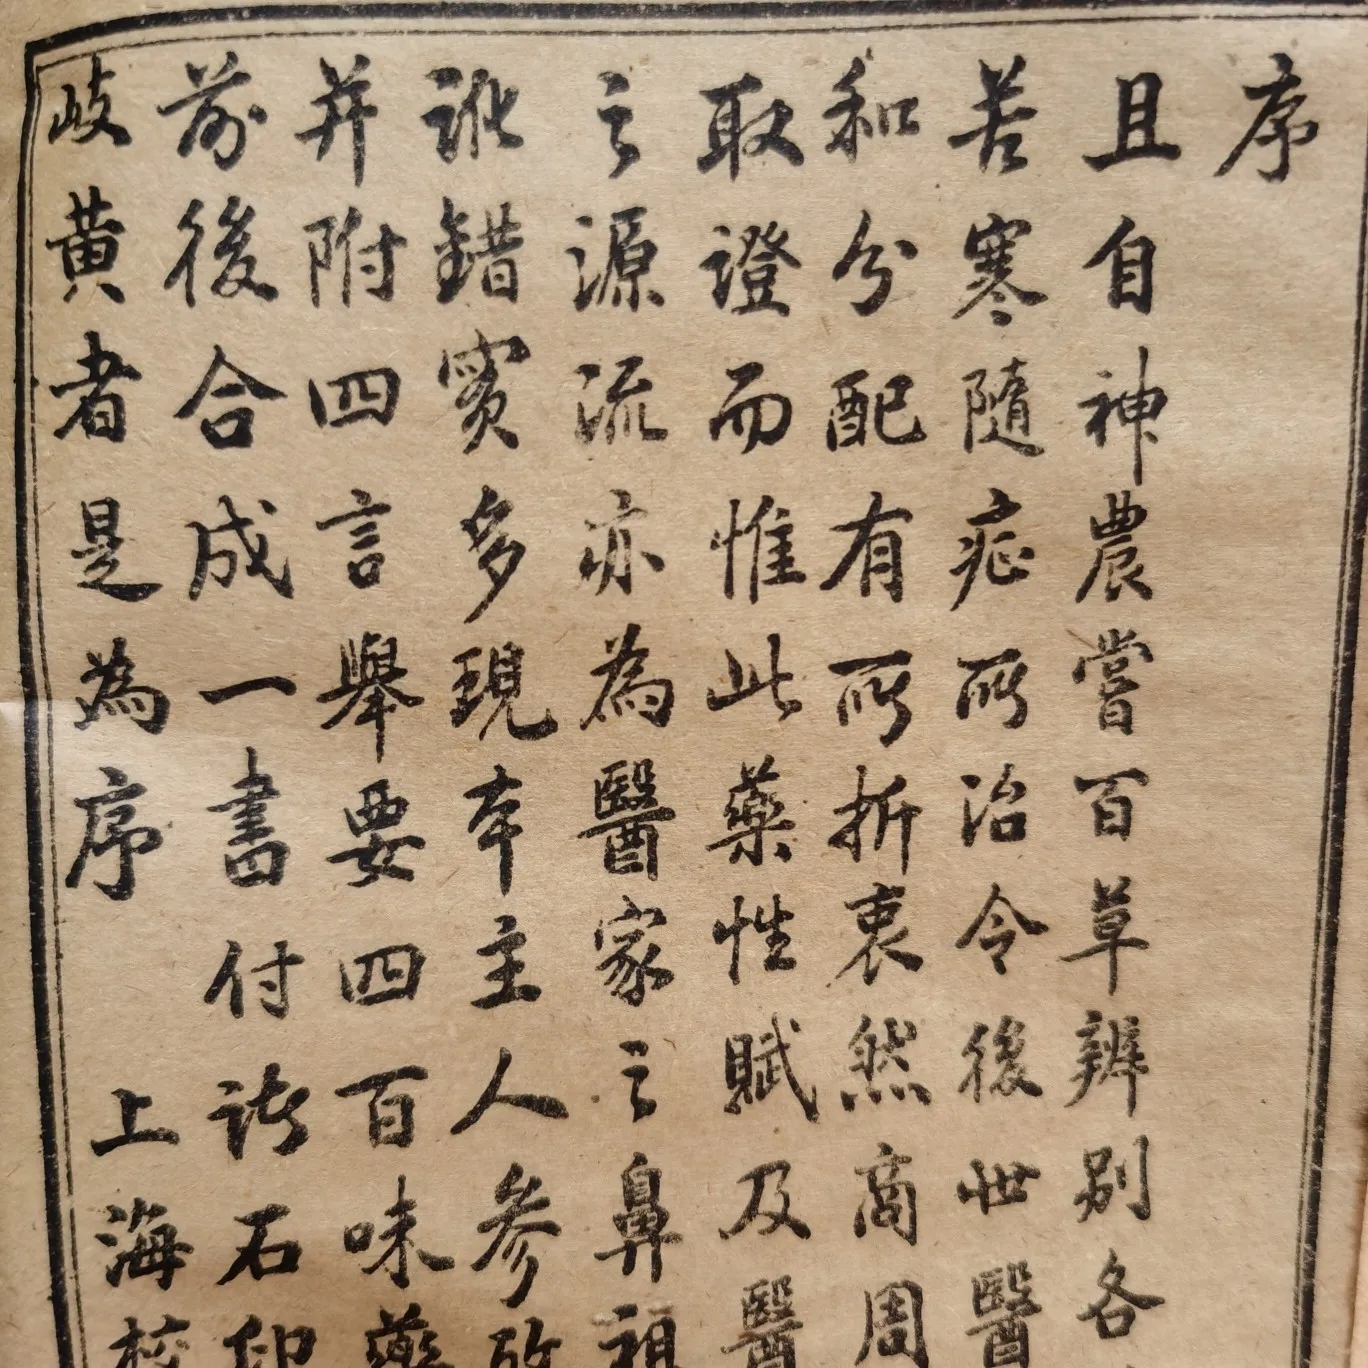 序
且自神農嘗百草辨別各
苦寒隨症所治令後世醫
和分配有所折衷然商周
取證而惟此藥性賦及醫
之源流亦為醫家之鼻祖
訛錯實多現本主人參攷
并附四言舉要四百味藥
前後合成一書付諸石印
岐黃者是為序 上海校